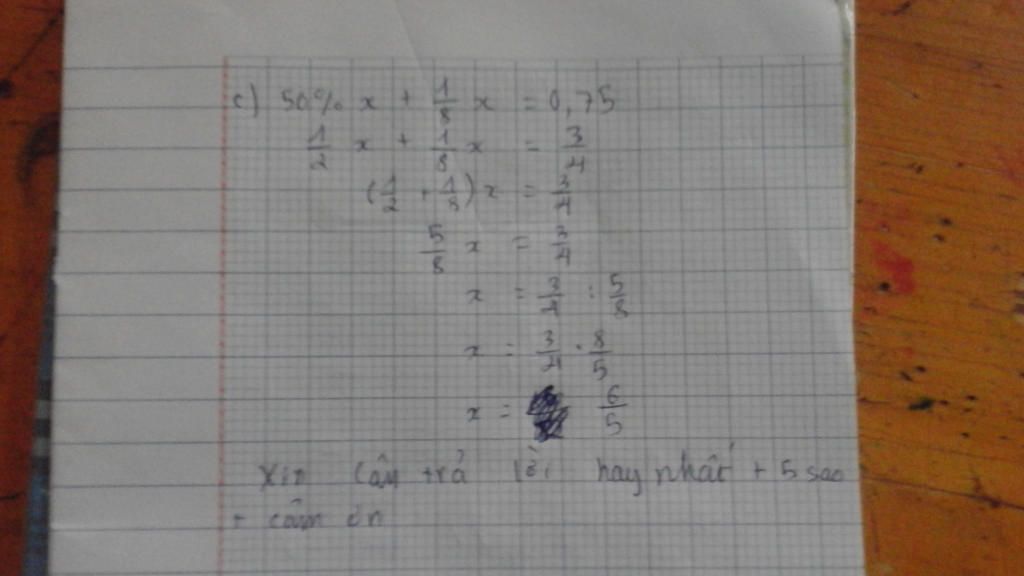 c) 50% x + 1/8 x = 0,75
1/2 x + 1/8 x = 3/4
(1/2 + 1/8) x = 3/4
5/8 x = 3/4
x = 3/4 : 5/8
x = 3/4 . 8/5
x = 6/5
Xin câu trả lời hay nhất + 5 sao
+ cảm ơn